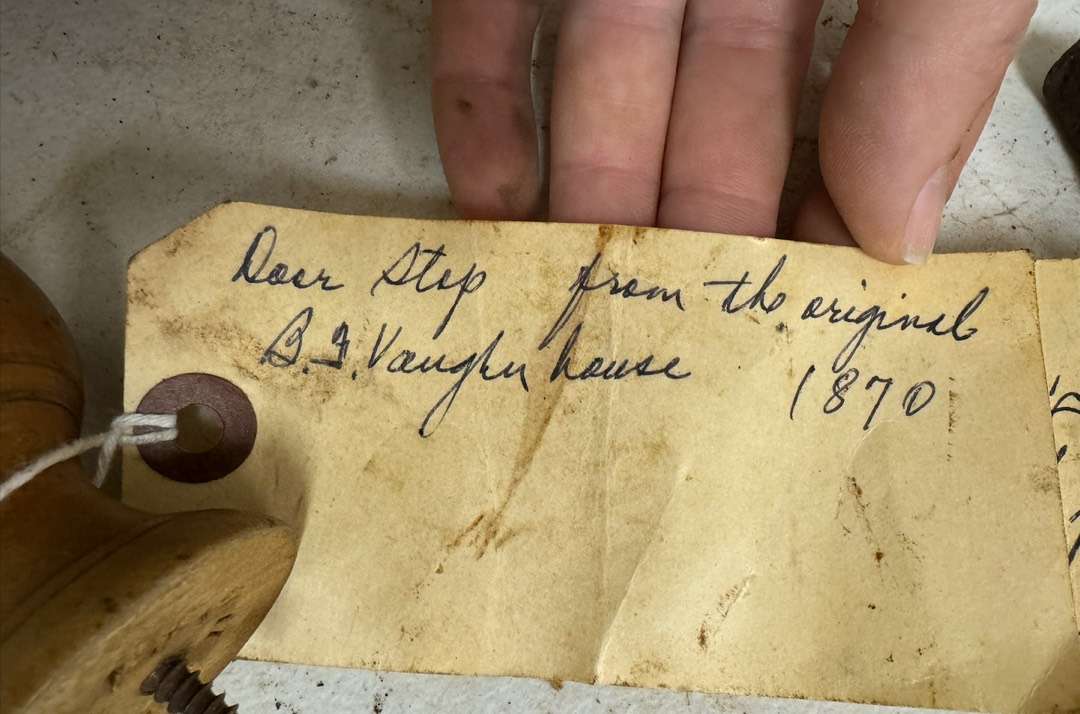 Door Stop from the original
B.F. Vaughn house 1870